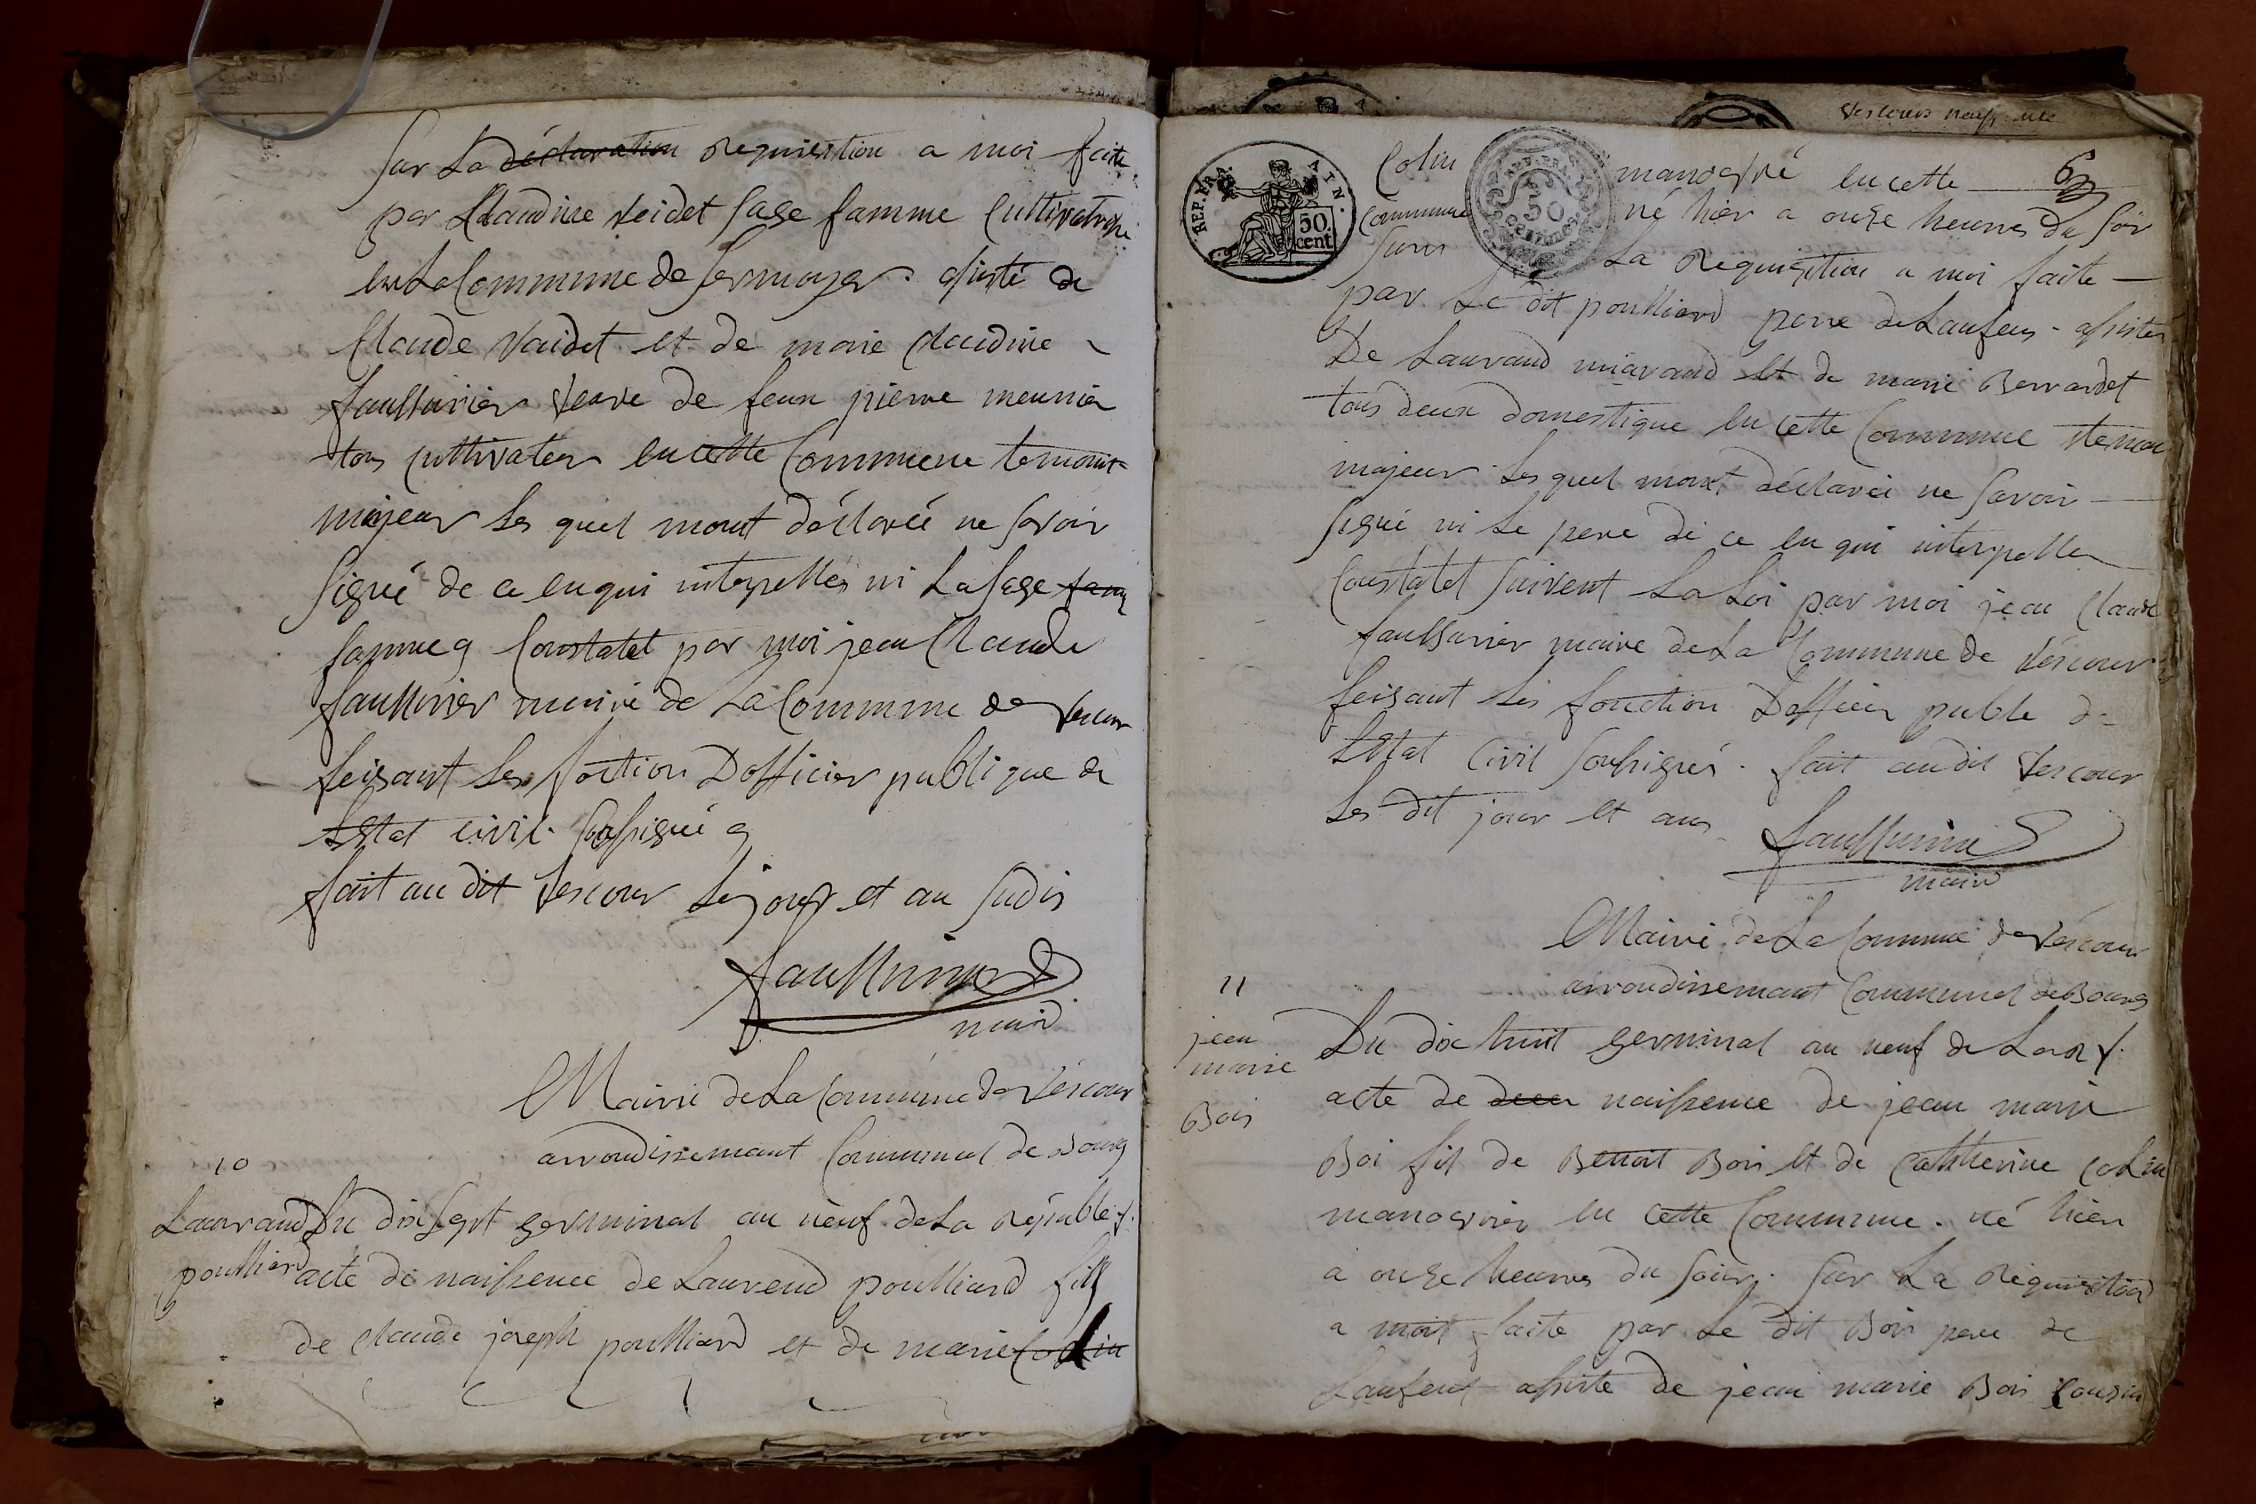 Sur La déclaration Requisition a moi faite
par Claudine veidet sage famme Cultivatrise
en La Commune de Sermoyer. assisté de
Claude vaidet et de marie claudine
faussurier veave de feux pierre meunier
tous cultivateur en cette Commune temoint
majeur Les quel mont déclaréé ne savoir
signé de ce en qui interpellés ni La sage fam
famme Constatet par moi jean Claude
faussurier maire de La Commune de vescour
feisant Les fontion D'officier publique de
L'Etat civil soussigné
fait au dit vescour Les jour et an sudis
faussurier
maire
Mairie de La Commune de vescour
arrondissemant Communal de Bourg
10
Lauvrand
poulliard
Du dix sept germinal an neuf de La Republe f.
acte de naissence de Laurend poulliard fils
de claude joseph poulliard et de marie Colin
vescours neuf
REP. FRA. AIN.
50. cent
REP. FRA.
50 centimes
63
Colin manoevré en cette
commune né hier a onze heures du soir
surs La Requisition a moi faite
par Le dit poulliard pere de Lanfens. assister
De Lauvrand migrand et de marie Berrardet
tous deux domestique en cette Commune temou
majeur Les quel mont déclaréé ne savoir
signé ni Le pere de ce en qui interpeller
Constatet suivent La Loi par moi jean Claude
faussurier maire de La Commune de vescour
feisant Les fonction D'officier puble de
L'Etat Civil soussigné. fait audit vescour
Les dit jour et ans
faussurier
maire
Mairie de La Commune de vescour
arrondissemant Communal de Bourg
11
jean
marie
Bois
Du dix huit germinal an neuf de La R f.
acte de deces naissence de jean marie
Boi fils de Benoit Bois et de Catherine Colin
manoevrier en cette Commune. né hier
a onze heures du soir. sur La Requisition
a moit faite par Le dit Bois pere de
Lanfent assisté de jean marie Bois Cousin